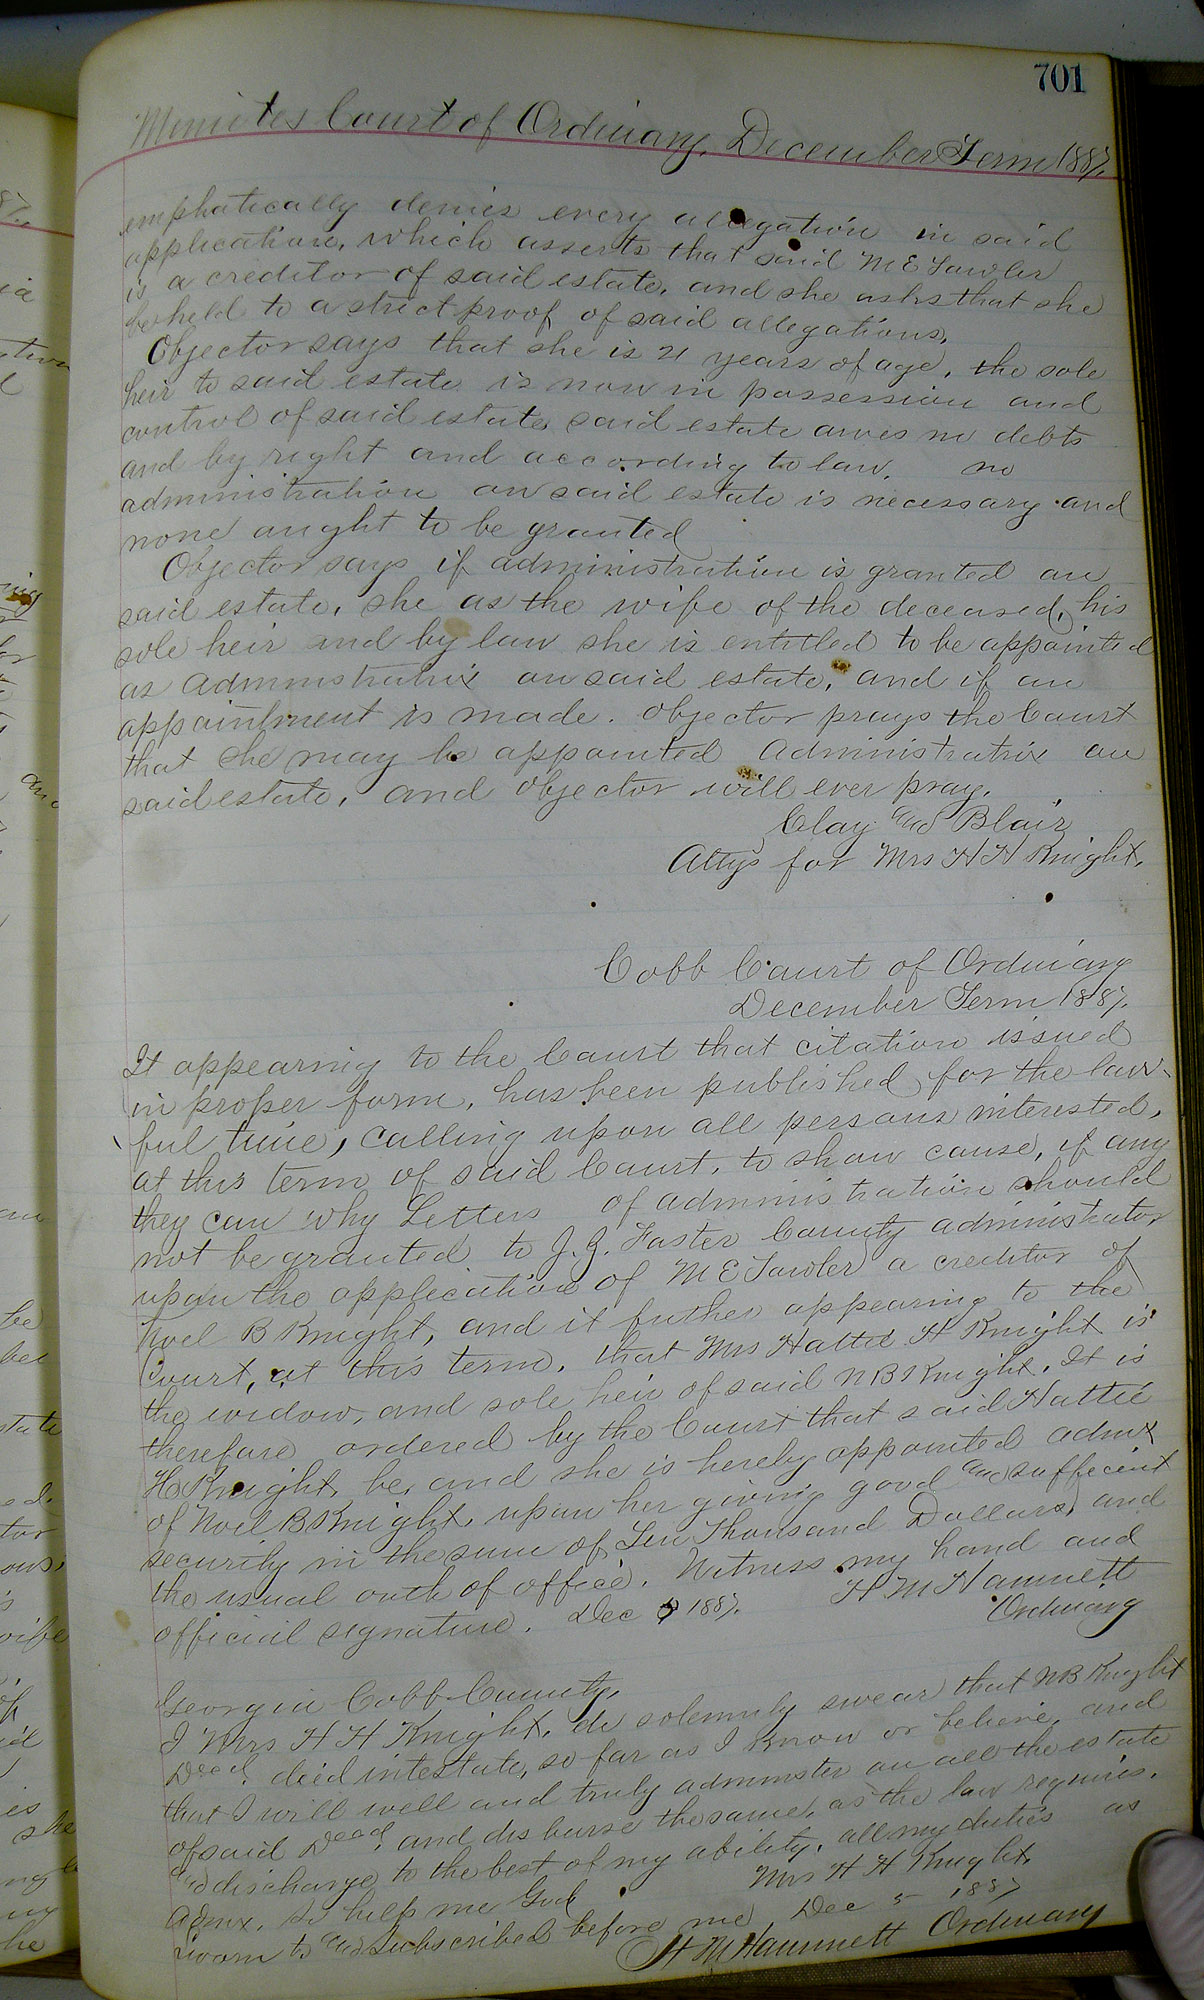 701
Minutes Court of Ordinary, December Term 1887.
emphatically denies every allegation in said
application, which asserts that said M E Lawler
is a creditor of said estate, and she asks that she
be held to a strict proof of said allegations.
Objector says that she is 21 years of age, the sole
heir to said estate is now in possession and
control of said estate, said estate owes no debts
and by right and according to law, no
administration on said estate is necessary and
none ought to be granted
Objector says if administration is granted on
said estate, she as the wife of the deceased, his
sole heir and by law she is entitled to be appointed
as administratrix on said estate, and if an
appointment is made. Objector prays the Court
that she may be appointed administratrix on
said estate, and objector will ever pray.
Clay and Blair
Attys for Mrs H H Knight.
Cobb Court of Ordinary
December Term 1887.
It appearing to the Court that citation issued
in proper form, has been published for the law-
ful time, calling upon all persons interested,
at this term of said Court, to show cause, if any
they can why Letters of administration should
not be granted to J. G. Foster County administrator
upon the application of M E Lawler a creditor of
Noel B Knight, and it futher appearing to the
Court, at this term, that Mrs Hattie H Knight is
the widow, and sole heir of said N B Knight. It is
therefore ordered by the Court that said Hattie
H Knight, be, and she is hereby appointed admx
of Noel B Knight, upon her giving good and sufficient
security in the sum of Ten Thousand Dollars, and
the usual oath of office. Witness my hand and
official signature. Dec 1887. H M Hammett
Ordinary
Georgia Cobb County,
I Mrs H H Knight, do solemnly swear that N B Knight
Decd. died intestate, so far as I know or believe, and
that I will well and truly administer on all the estate
of said Decd. and disburse the same, as the law requires,
and discharge to the best of my ability, all my duties as
Admx. So help me God Mrs H H Knight.
Sworn to and subscribed before me Dec 5 1887
H M Hammett Ordinary